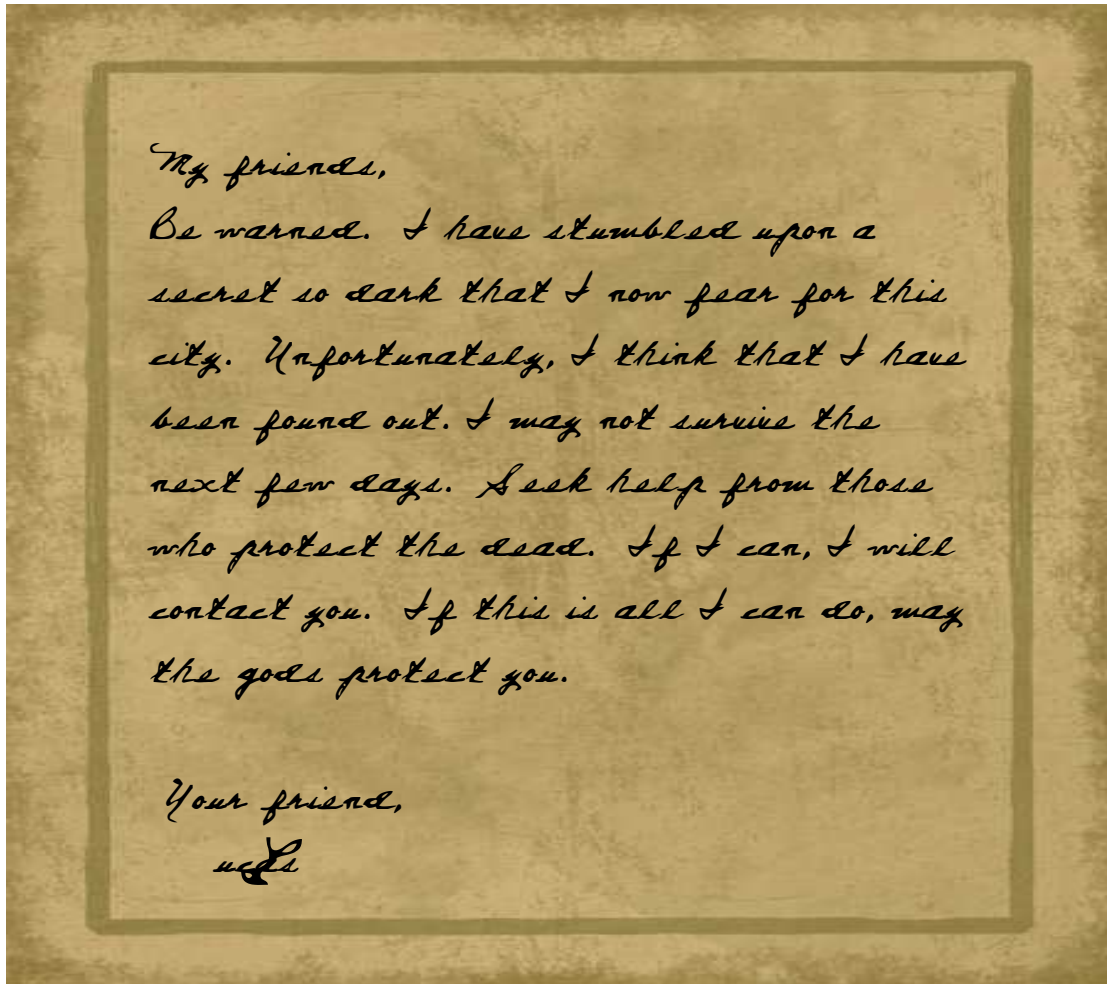 My friends,
Be warned. I have stumbled upon a
secret so dark that I now fear for this
city. Unfortunately, I think that I have
been found out. I may not survive the
next few days. Seek help from those
who protect the dead. If I can, I will
contact you. If this is all I can do, may
the gods protect you.
Your friend,